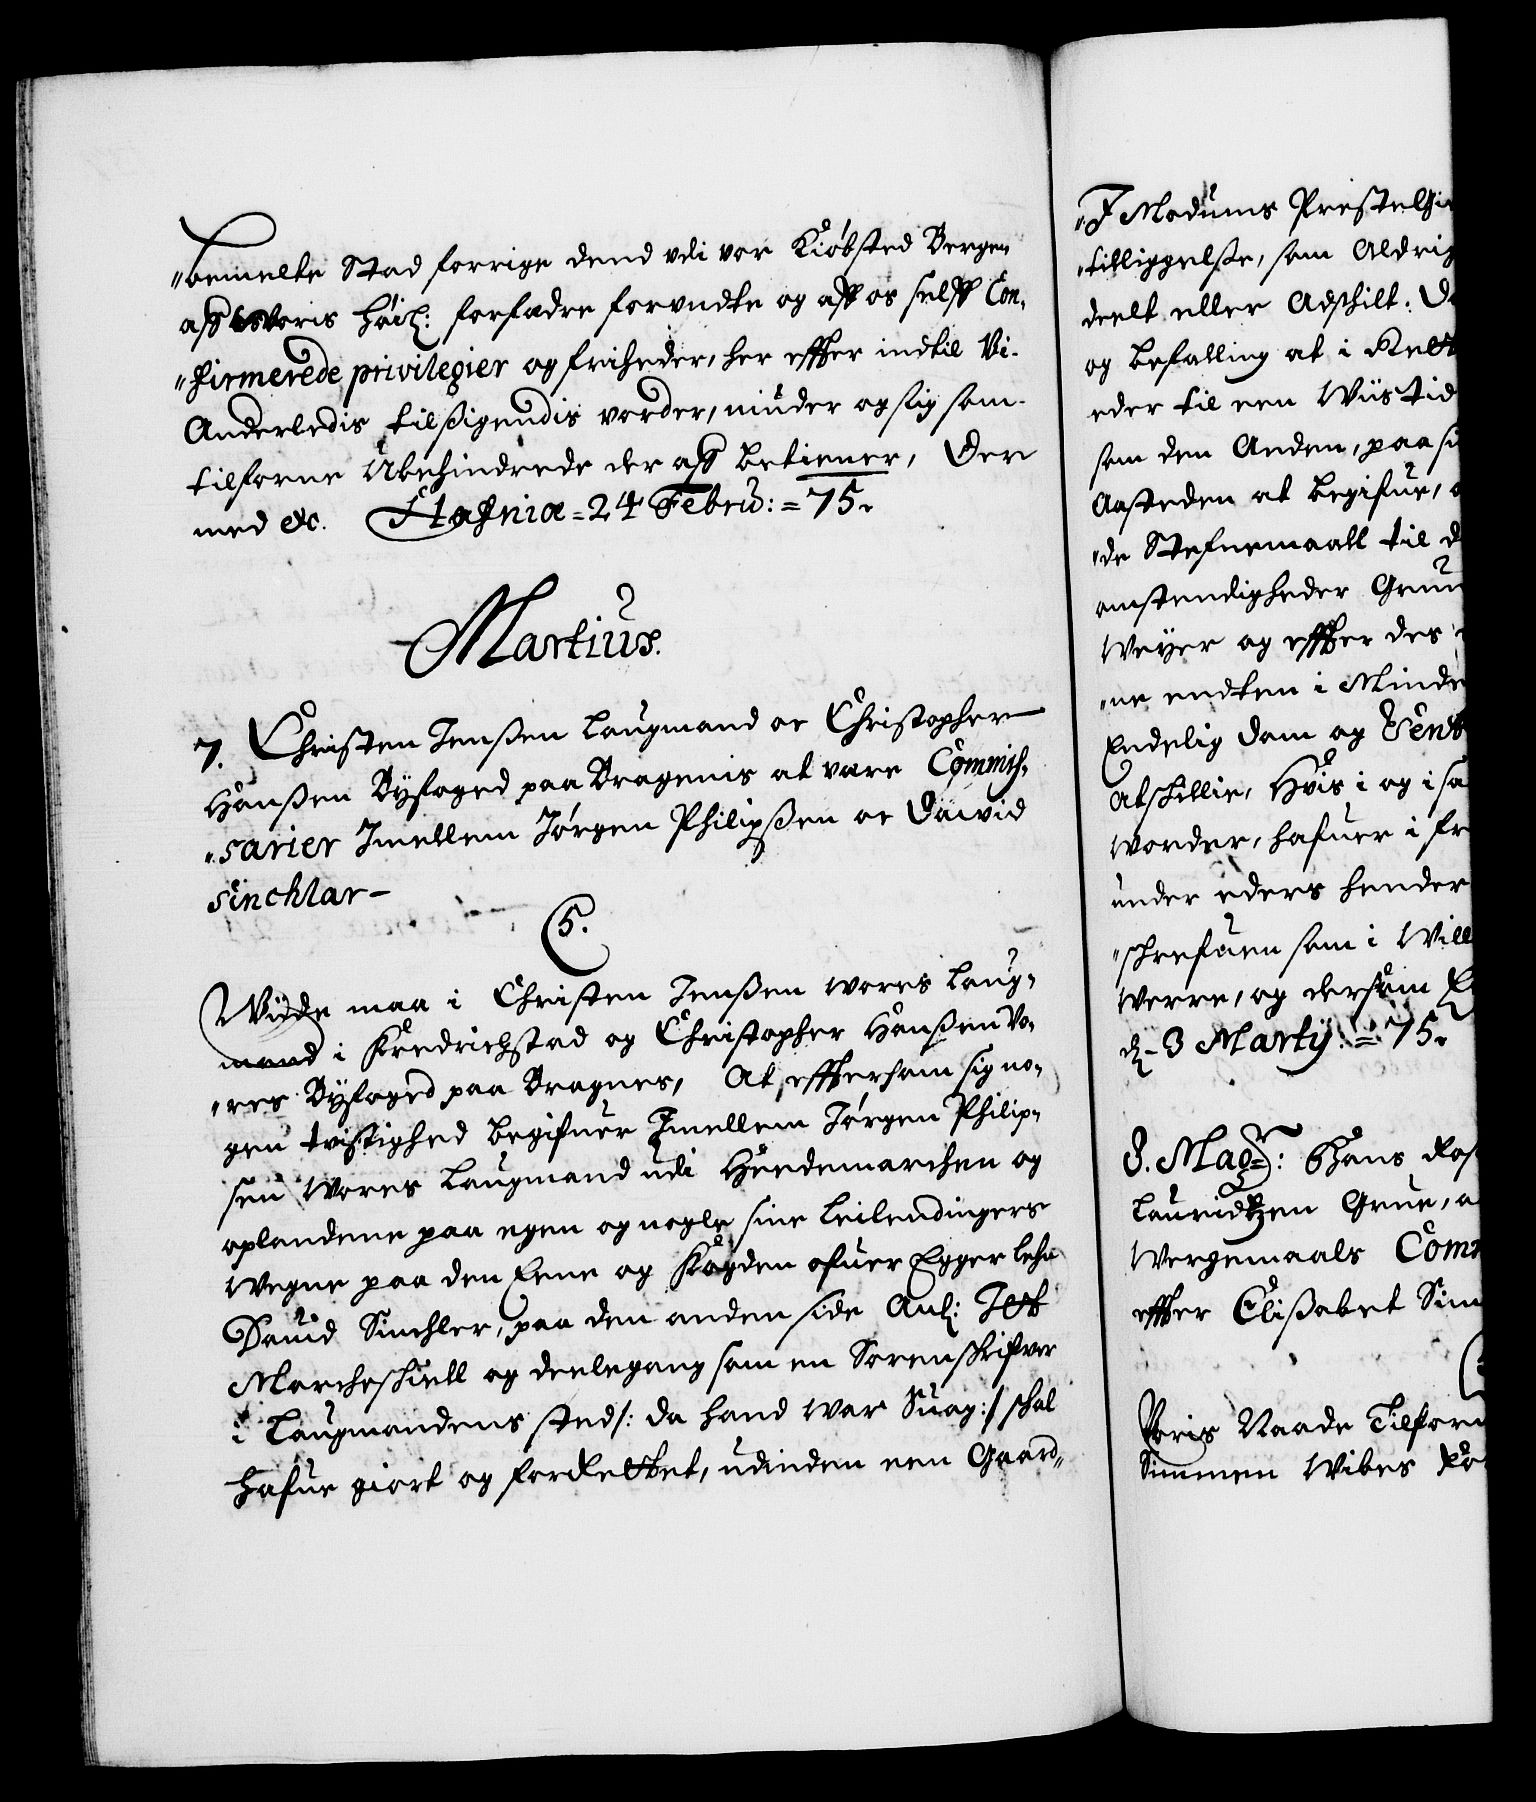 "bemelte Stad forrige dend vdi vor Kiøbsted Bergen
aff Voris höil: forfædre forundte og aff os selff Con-
"firmerede privilegier og friheder, her effter indtil Vi
Anderledis tilsigendis vorder, niuder og sig som
tilforne Ubehindrede der aff betiener, Der
med &c. Hafniæ = 24 Febru: = 75.
Martius.
7. Christen Jenßen Laugmand oc Christopher
Hanßen Byfoged paa Bragenis at være Commis-
"sarier Imellem Jørgen Philipßen oc David
Sinchlar -
5.
Wiide maa i Christen Jenßen wores Laug-
mand i Fredrichstad og Christopher Hanßen Vo-
"res Byfoged paa Bragnes, At efftersom sig no-
gen tvistighed begifuer Imellem Jørgen Philip-
sen Wores Laugmand udi Hedemarchen og
oplandene paa egen og nogle sine Leilendingers
Wegne paa den Eene og Fogden ofuer Egger Lehn
Dauid Sinchler, paa den anden side Anl:
Marcheskiell og deelegang som en Sorenskrifver
i Laugmandens sted /: da hand war Suag :/ schal
hafue giort og forrettet, udinden een Gaard
"I Modums Prestelgi
"tilliggelse, som Aldrig
deelt eller Adskilt: D
og befalling at i
eder til een Wiis tid
som den Anden, paa
Aasteden at begifue,
"de Stefnemaall til d
omstendigheder
Weyer og effter des
"ne endten i Minde
Endelig Dom og
Atskillie, Hvis i og i sa
Worder, hafuer i fr
under eders hender
"schrefuen som i Will
Werre, og dersom
d. 3 Martij: = 75.
8. Magr: Hans Ros
Lauridtzen Grue, a
Wergemaals Com
effter Elisabet Sin
Voris Naade Tilforn
Simmen Wibes